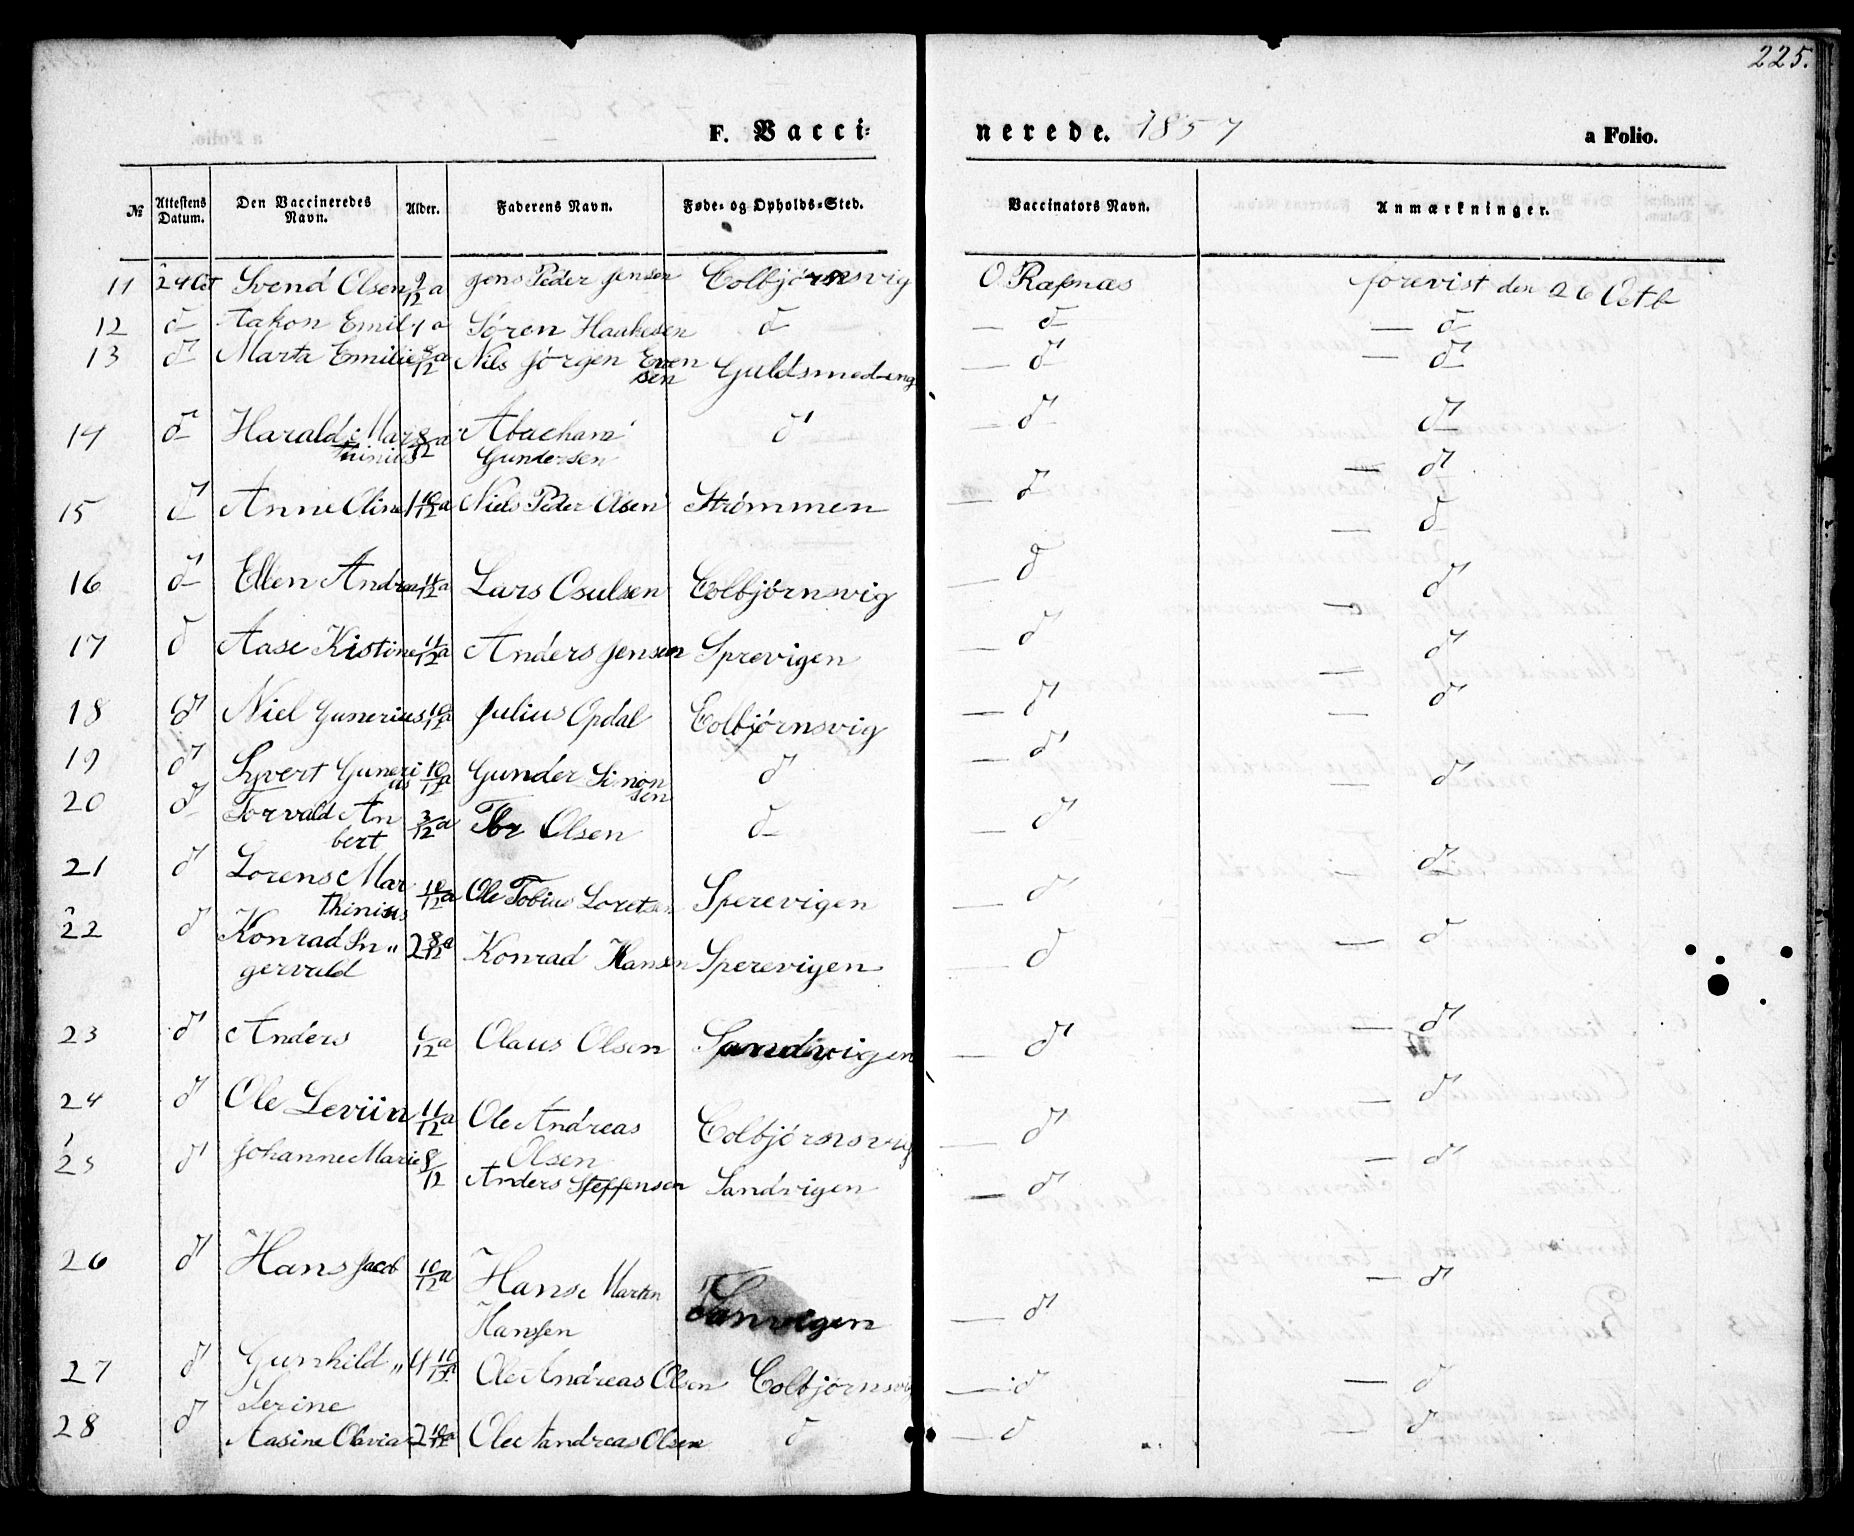 225.
F. Vacci= nerede. 1857 a Folio.
№ Attestens Datum. Den Vaccineredes Navn. Alder. Faderens Navn. Føde= og Opholds=Sted. Vaccinators Navn. Anmærkninger.
11 24 Oct Svend Olsen 9/12 a Jens Peder Jensen Colbjørnsvig O Rafnæs forevist den 26 Octb
12 d Aakon Emil 1 a Søren Haakesen d — d — d
13 d Marta Emilie 8/12 a Nils Jørgen Even Guldsmedeng — d — d
sen
14 d Harald Mar 8/12 a Abraham d — d d
thinius Gundersen
15 d Anne Oline 1 10/12 a Niels Peder Olsen Strømmen — d — d
16 d Ellen Andrea 11/12 a Lars Osulsen Colbjørnsvig — d — d
17 d Aase Kistine 11/12 a Anders Jensen Sprevigen — d — d
18 d Niel Gunerius 10/12 a Julius Opdal Colbjørnsvig — d — d
19 d Syvert Guneri 10/12 a Gunder Simon d — d — d
us sen
20 d Torvald An 3/12 a Tor Olsen d — d — d
bert
21 d Lorens Mar 10/12 a Ole Tobius Loretsen Sperevigen — d d
thinius
22 d Konrad In„ 2 8/12 a Konrad Hansen Sperevigen — d — d
gervald
23 d Anders 6/12 a Olaus Olsen Sandvigen — d — d
24 d Ole Leviin 11/12 a Ole Andreas Colbjørnsvig — d — d
Olsen
25 d Johanne Marie 8/12 Anders Steffensen Sandvigen — d — d
26 d Hans Jacob 10/12 a Hans Martin Sanvigen — d — d
Hansen
27 d Gunhild„ 4 11/12 a Ole Andreas Olsen Colbjørnsvig — d — d
Serine
28 d Aasine Olavia 2 10/12 a Ole Andreas Olsen d — d — d